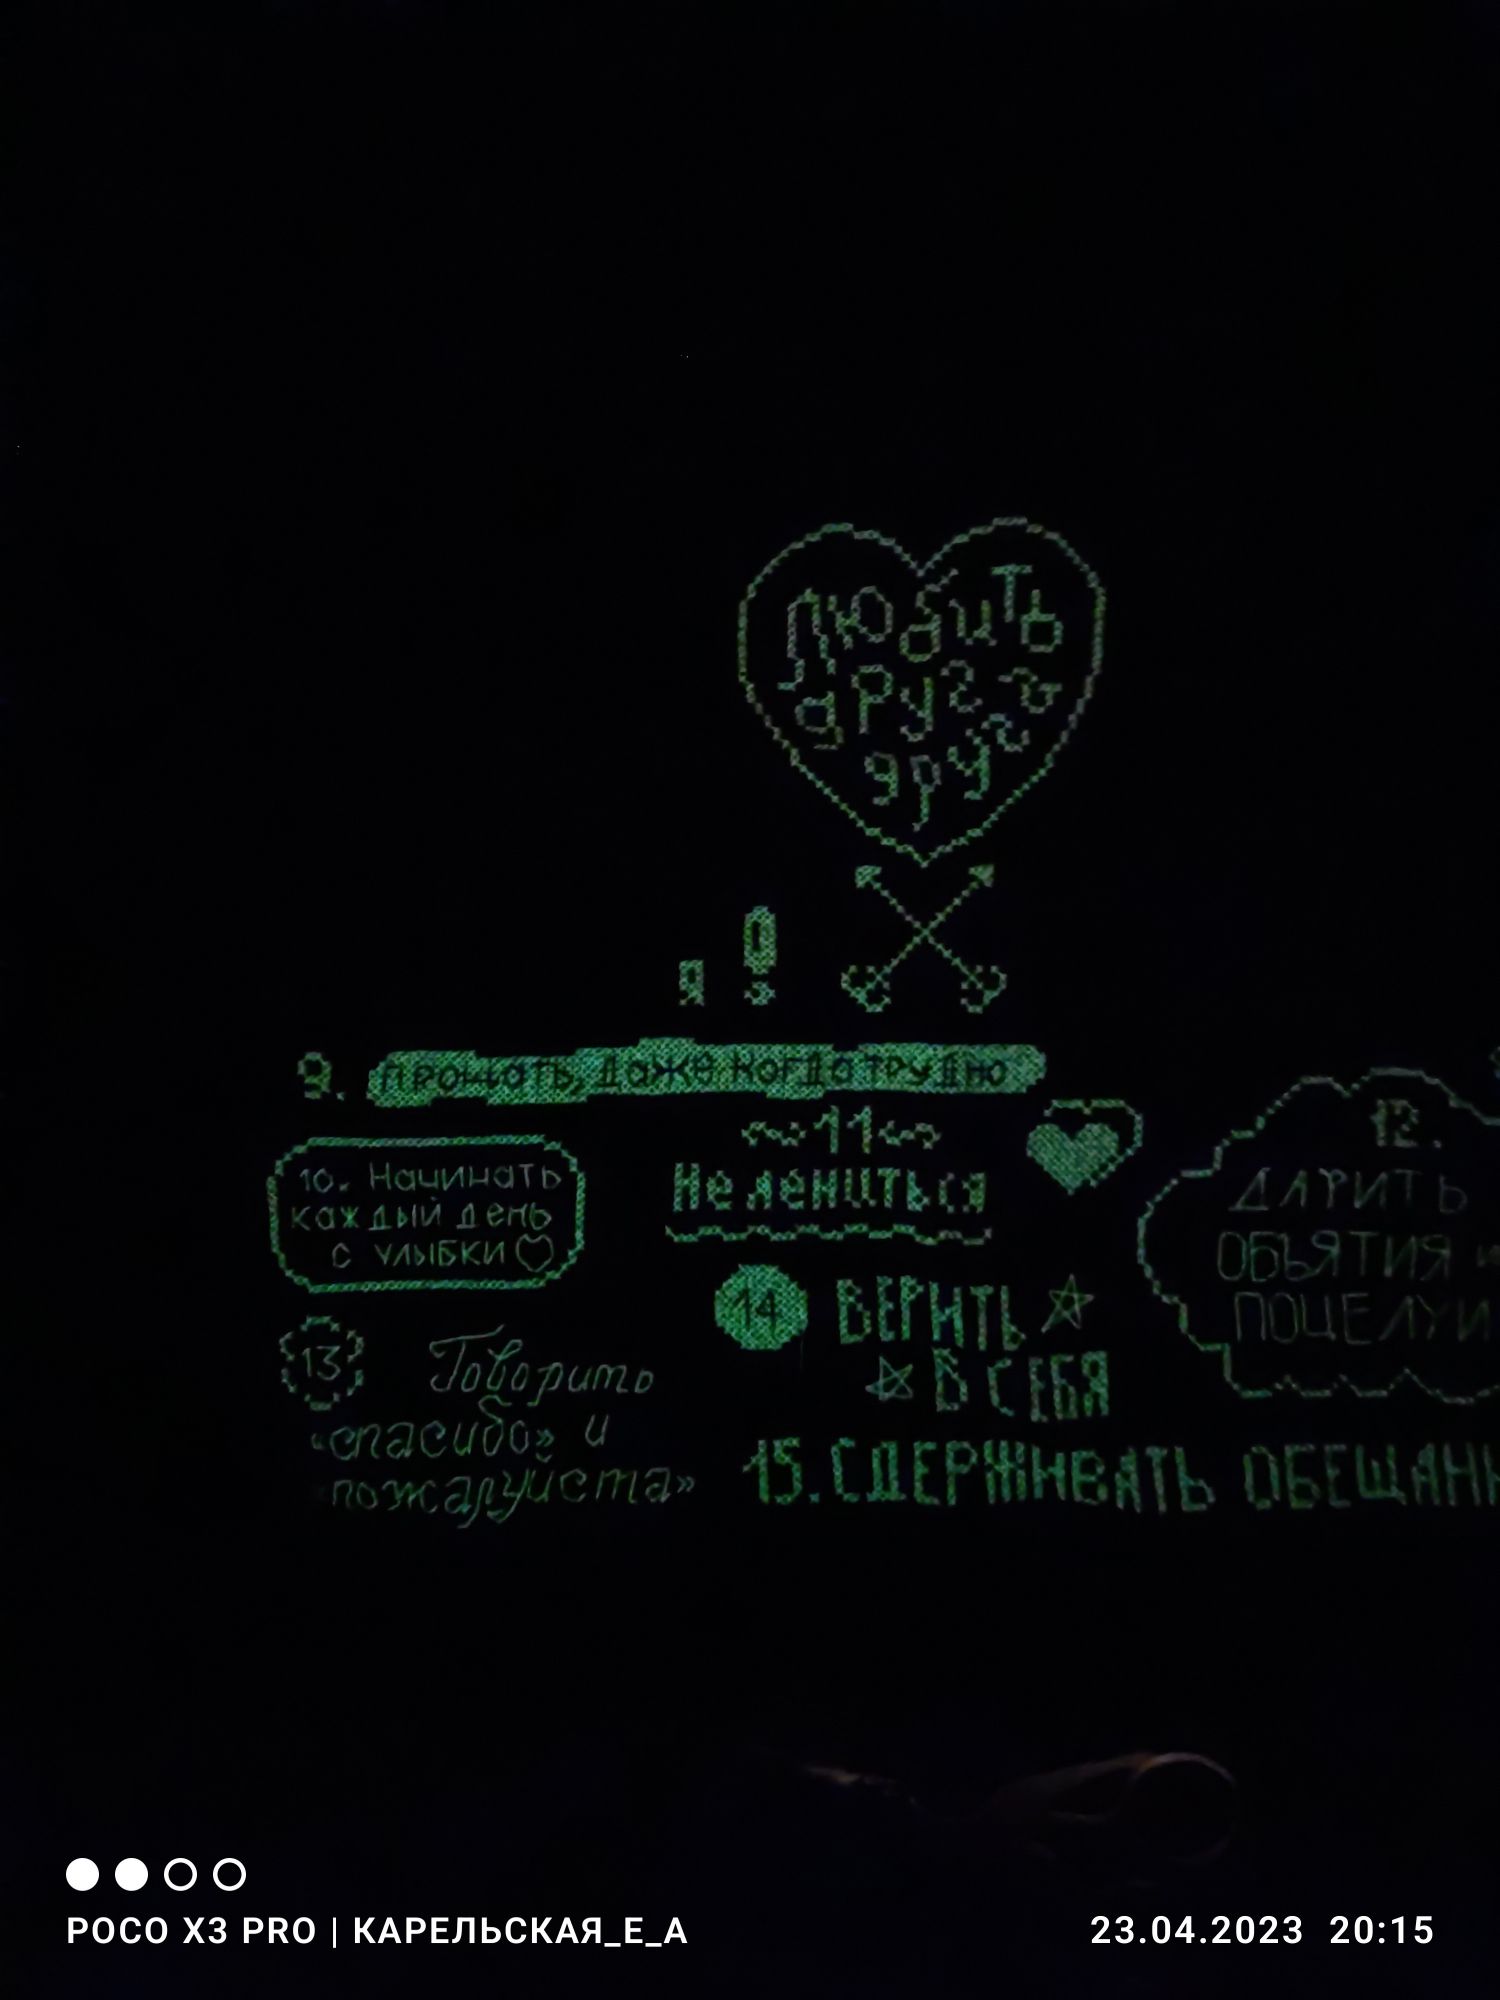 Любить
друг
друг
я
9. Прощать, даже когда трудно
~11~
Не лениться
10. Начинать
каждый день
с улыбки
12.
ДАРИТЬ
ОБЪЯТИЯ и
ПОЦЕЛУИ
13 Говорить
«спасибо» и
«пожалуйста»
14 ВЕРИТЬ
В СЕБЯ
15. СДЕРЖИВАТЬ ОБЕЩАНИ
POCO X3 PRO | КАРЕЛЬСКАЯ_Е_А
23.04.2023 20:15